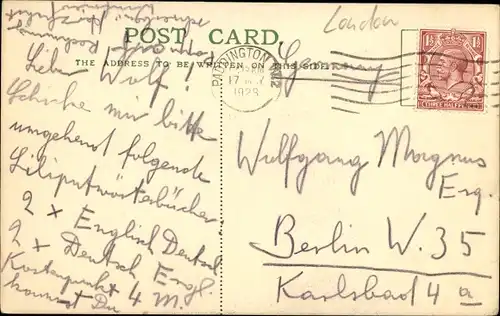 London
POST CARD.
THE ADDRESS TO BE WRITTEN ON THIS SIDE.
Germany
PADDINGTON. W.2
17
1923
THREE HALFPENCE
Lieber Wolf!
Schicke mir bitte
umgehend folgende
Liliputwörterbücher
2 x Englisch Deutsch
2 x Deutsch Engl.
Kostenpunkt 4 M.
kannst Du
Wolfgang Magnus
Esq.
Berlin W. 35
Karlsbad 4a